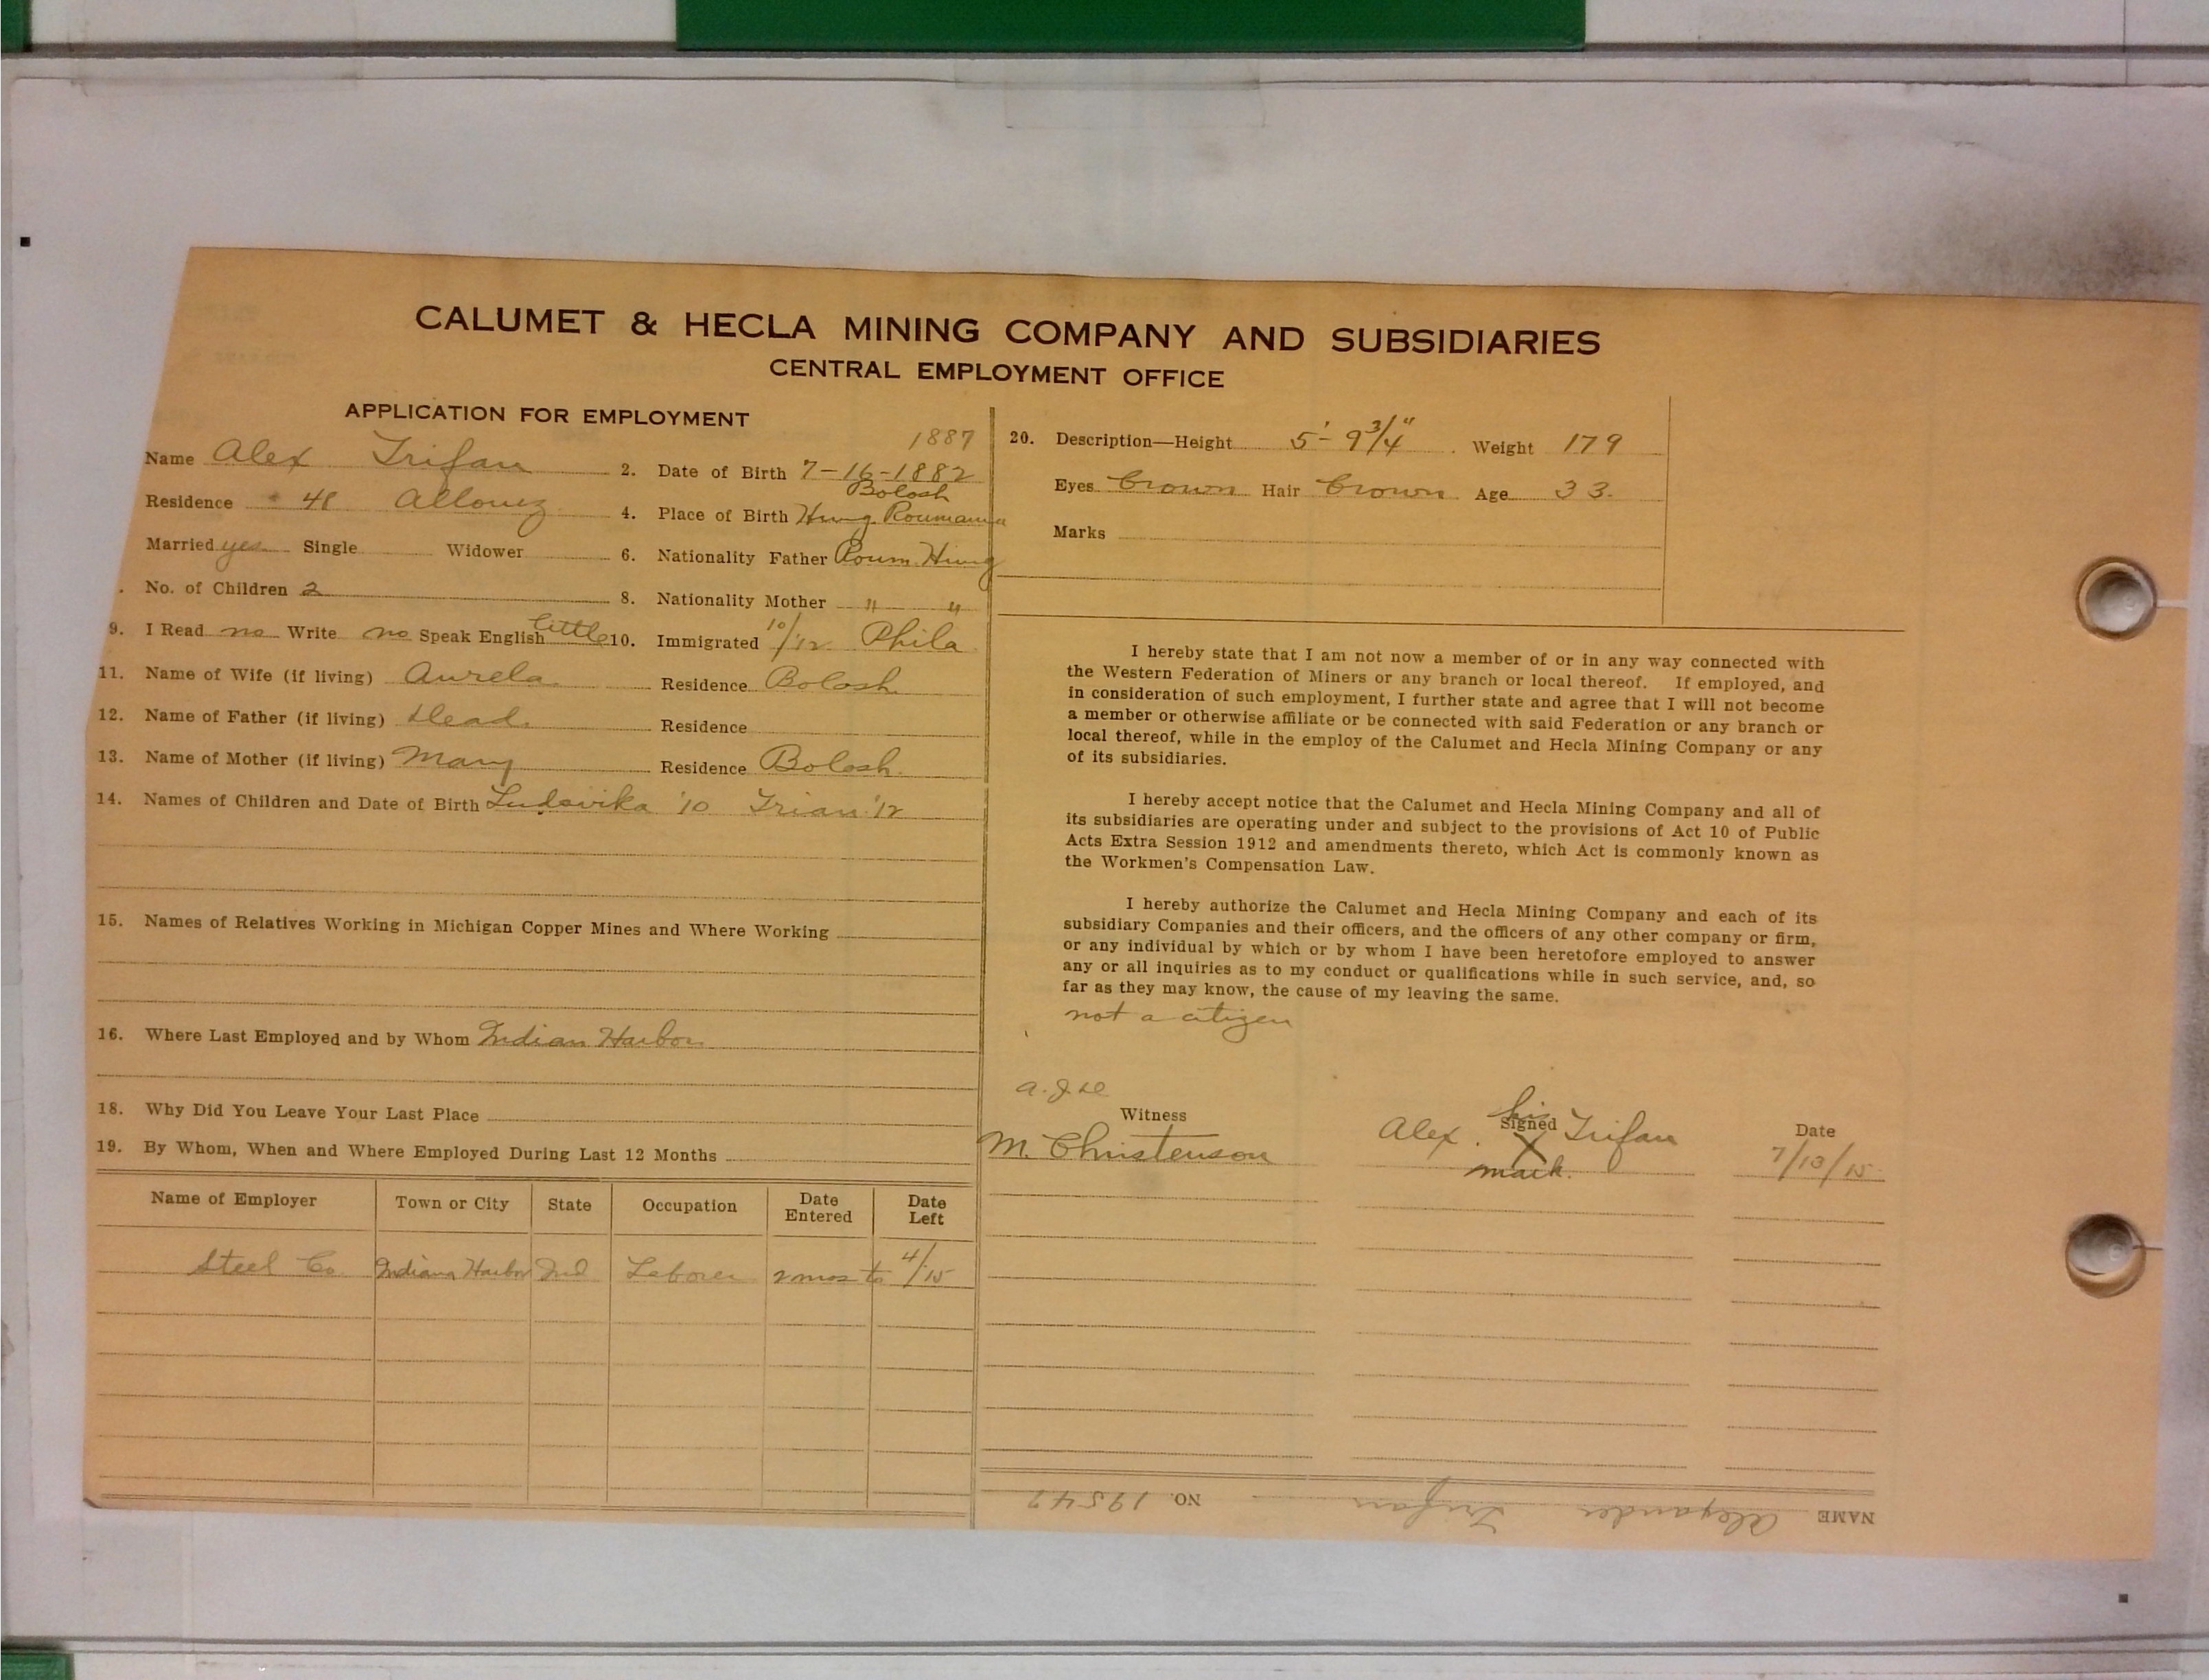 CALUMET & HECLA MINING COMPANY AND SUBSIDIARIES
CENTRAL EMPLOYMENT OFFICE
APPLICATION FOR EMPLOYMENT
1887
Name Alex Trifan 2. Date of Birth 7-16-1882
Bolosh
Residence 48 Allouez 4. Place of Birth Hung. Roumania
Married yes Single Widower 6. Nationality Father Roum. Hung
No. of Children 2 8. Nationality Mother " "
9. I Read no Write no Speak English little 10. Immigrated 10/12 Phila
11. Name of Wife (if living) Aurela Residence Bolosh
12. Name of Father (if living) Dead. Residence
13. Name of Mother (if living) Mary Residence Bolosh.
14. Names of Children and Date of Birth Ludovika '10 Trian '12
15. Names of Relatives Working in Michigan Copper Mines and Where Working
16. Where Last Employed and by Whom Indian Harbor
18. Why Did You Leave Your Last Place
19. By Whom, When and Where Employed During Last 12 Months
Name of Employer Town or City State Occupation Date Entered Date Left
Steel Co Indiana Harbor Ind Laborer 2 mos to 4/15
20. Description—Height 5'-9 3/4" Weight 179
Eyes brown Hair brown Age 33.
Marks
I hereby state that I am not now a member of or in any way connected with
the Western Federation of Miners or any branch or local thereof. If employed, and
in consideration of such employment, I further state and agree that I will not become
a member or otherwise affiliate or be connected with said Federation or any branch or
local thereof, while in the employ of the Calumet and Hecla Mining Company or any
of its subsidiaries.
I hereby accept notice that the Calumet and Hecla Mining Company and all of
its subsidiaries are operating under and subject to the provisions of Act 10 of Public
Acts Extra Session 1912 and amendments thereto, which Act is commonly known as
the Workmen's Compensation Law.
I hereby authorize the Calumet and Hecla Mining Company and each of its
subsidiary Companies and their officers, and the officers of any other company or firm,
or any individual by which or by whom I have been heretofore employed to answer
any or all inquiries as to my conduct or qualifications while in such service, and, so
far as they may know, the cause of my leaving the same.
not a citizen
Witness Signed Date
M. Christenson Alex his X mark. Trifan 7/13/15
NAME Alexander Trifan NO. 19547